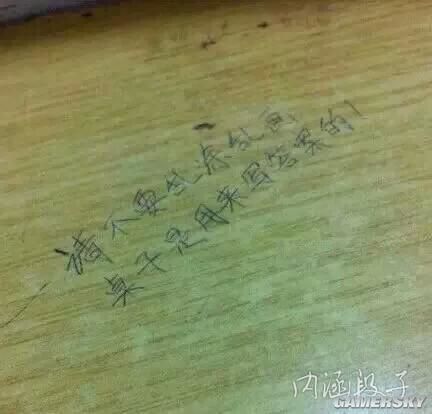 请不要乱涂乱画
桌子是用来写答案的!
内涵段子
GAMERSKY